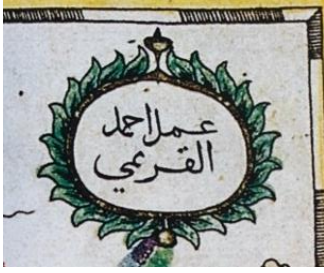 عمل احمد
القريمي